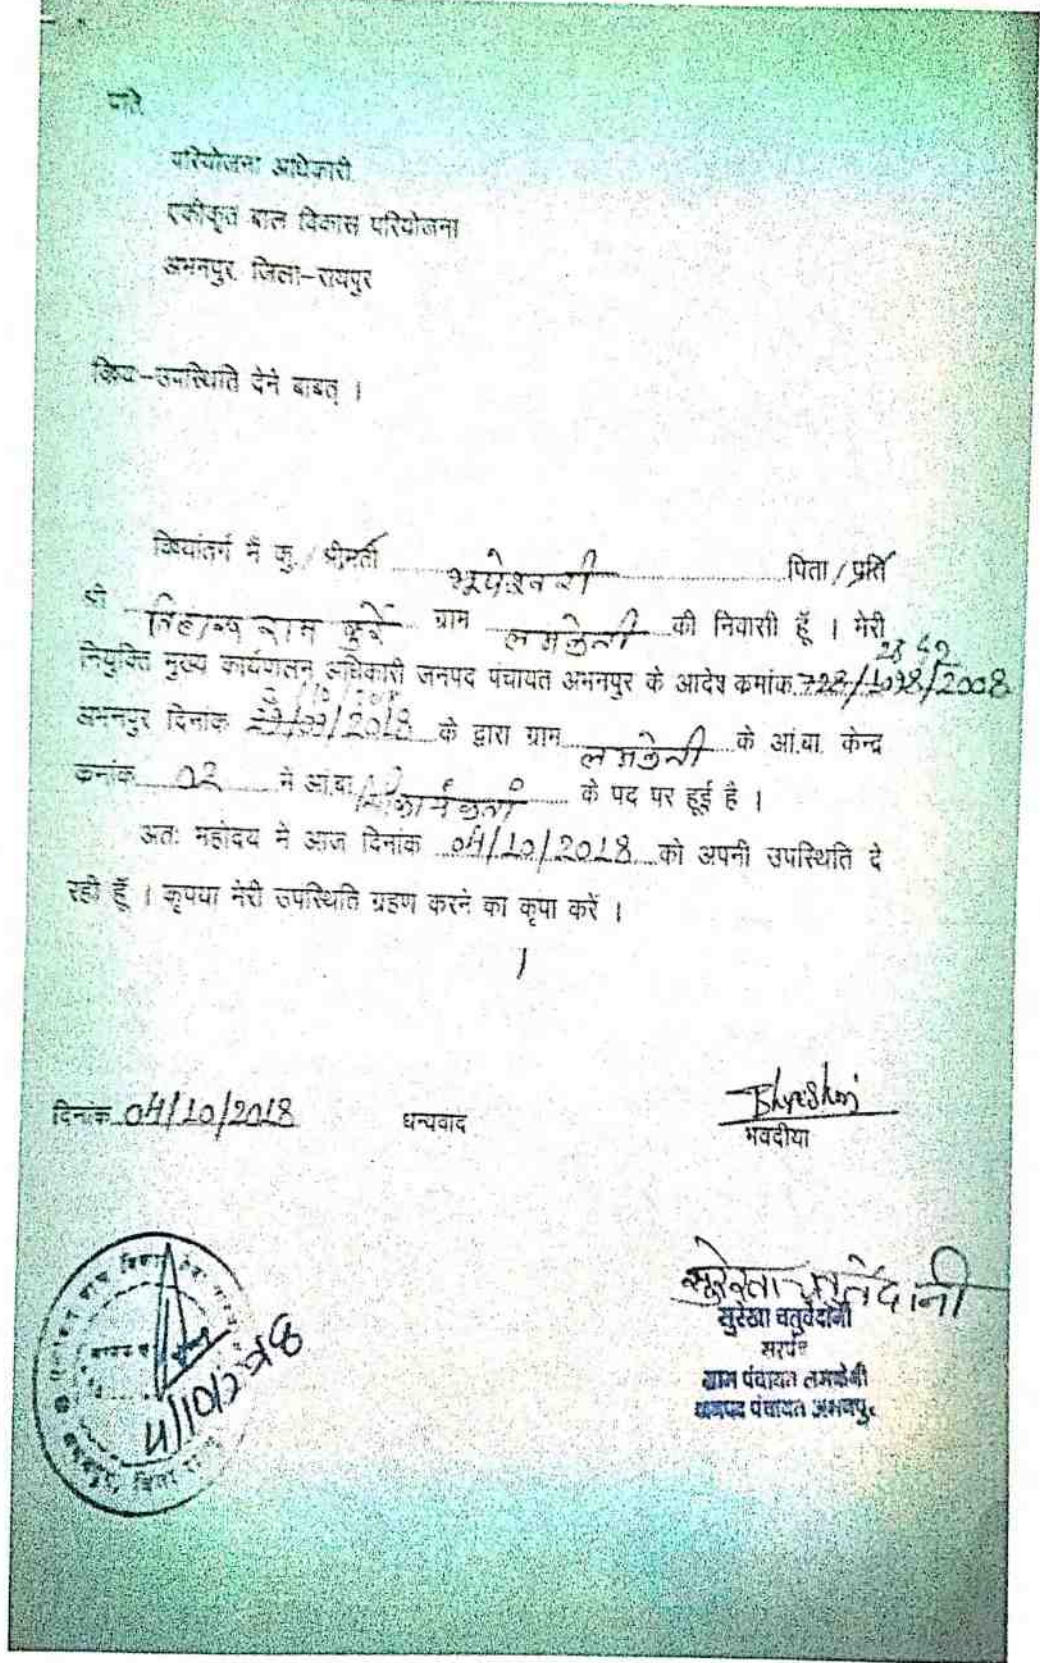 प्रति,
परियोजना अधिकारी
एकीकृत बाल विकास परियोजना
अभनपुर जिला-रायपुर
विषय-उपस्थिति देने बाबत् ।
विषयांतर्ग मैं कु./श्रीमती भूपेश्वरी पिता/पति
श्री राम कुर्रे ग्राम लमकेनी की निवासी हूँ । मेरी
2842
नियुक्ति मुख्य कार्यपालन अधिकारी जनपद पंचायत अभनपुर के आदेश कमांक /2008
अभनपुर दिनांक /2018 के द्वारा ग्राम लमकेनी के आं.बा. केन्द्र
कमांक 02 में आं.बा. कार्यकर्ता के पद पर हुई है ।
अतः महोदय मे आज दिनांक 04/10/2018 को अपनी उपस्थिति दे
रही हूँ । कृपया मेरी उपस्थिति ग्रहण करने का कृपा करें ।
दिनांक 04/10/2018 धन्यवाद
भवदीया
सुरेखा चतुर्वेदानी
सुरेखा चतुर्वेदानी
सरपंच
ग्राम पंचायत लमकेनी
जनपद पंचायत अभनपुर